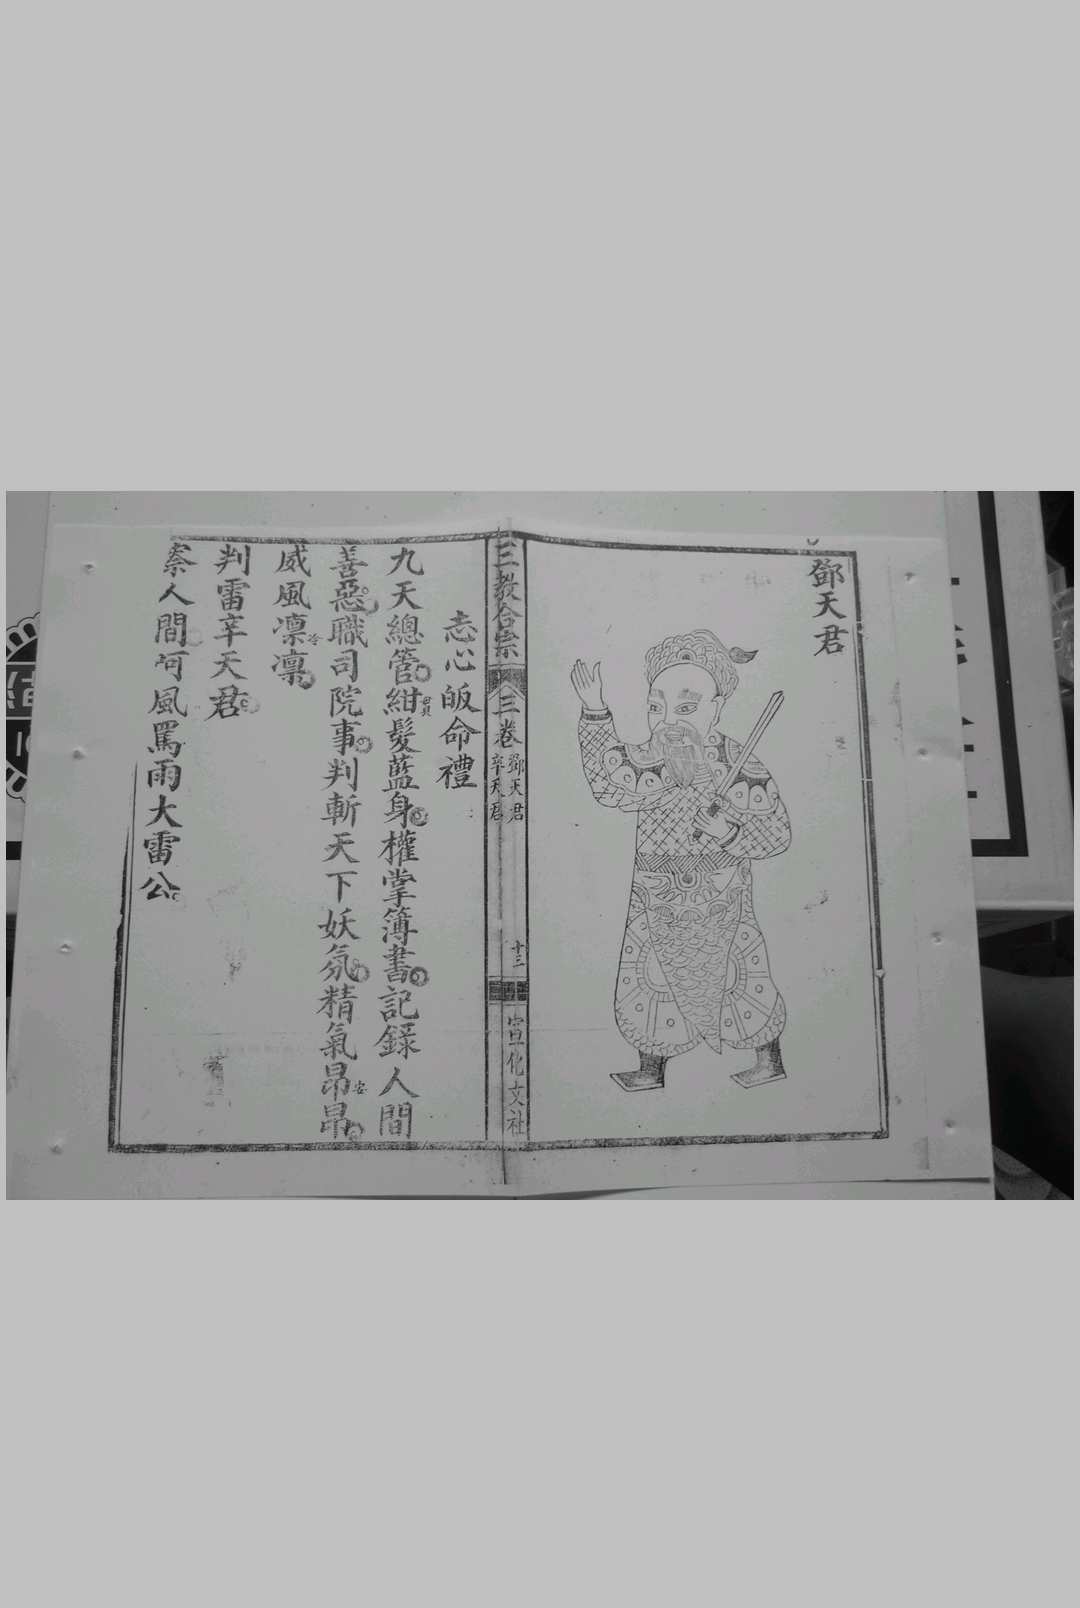 鄧天君
三教合宗
三卷
鄧天君
辛天君
十三
宣化文社
志心皈命禮
九天總管紺髮藍身權掌簿書記錄人間
善惡職司院事判斬天下妖氛精氣昂昂
威風凜凜
判雷辛天君
人間呵風罵雨大雷公